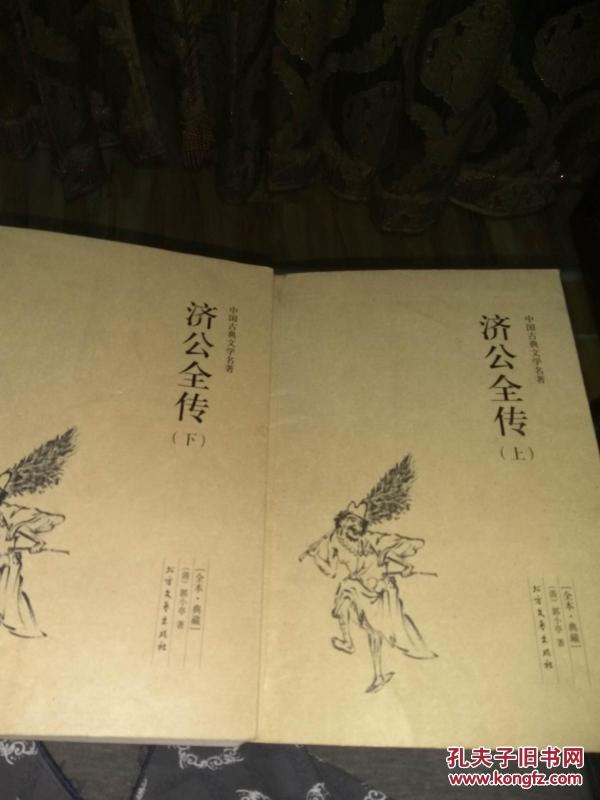 中国古典文学名著
济公全传
（下）
［全本·典藏］
［清］郭小亭 著
北方文艺出版社
中国古典文学名著
济公全传
（上）
［全本·典藏］
［清］郭小亭 著
北方文艺出版社
孔夫子旧书网
www.kongfz.com